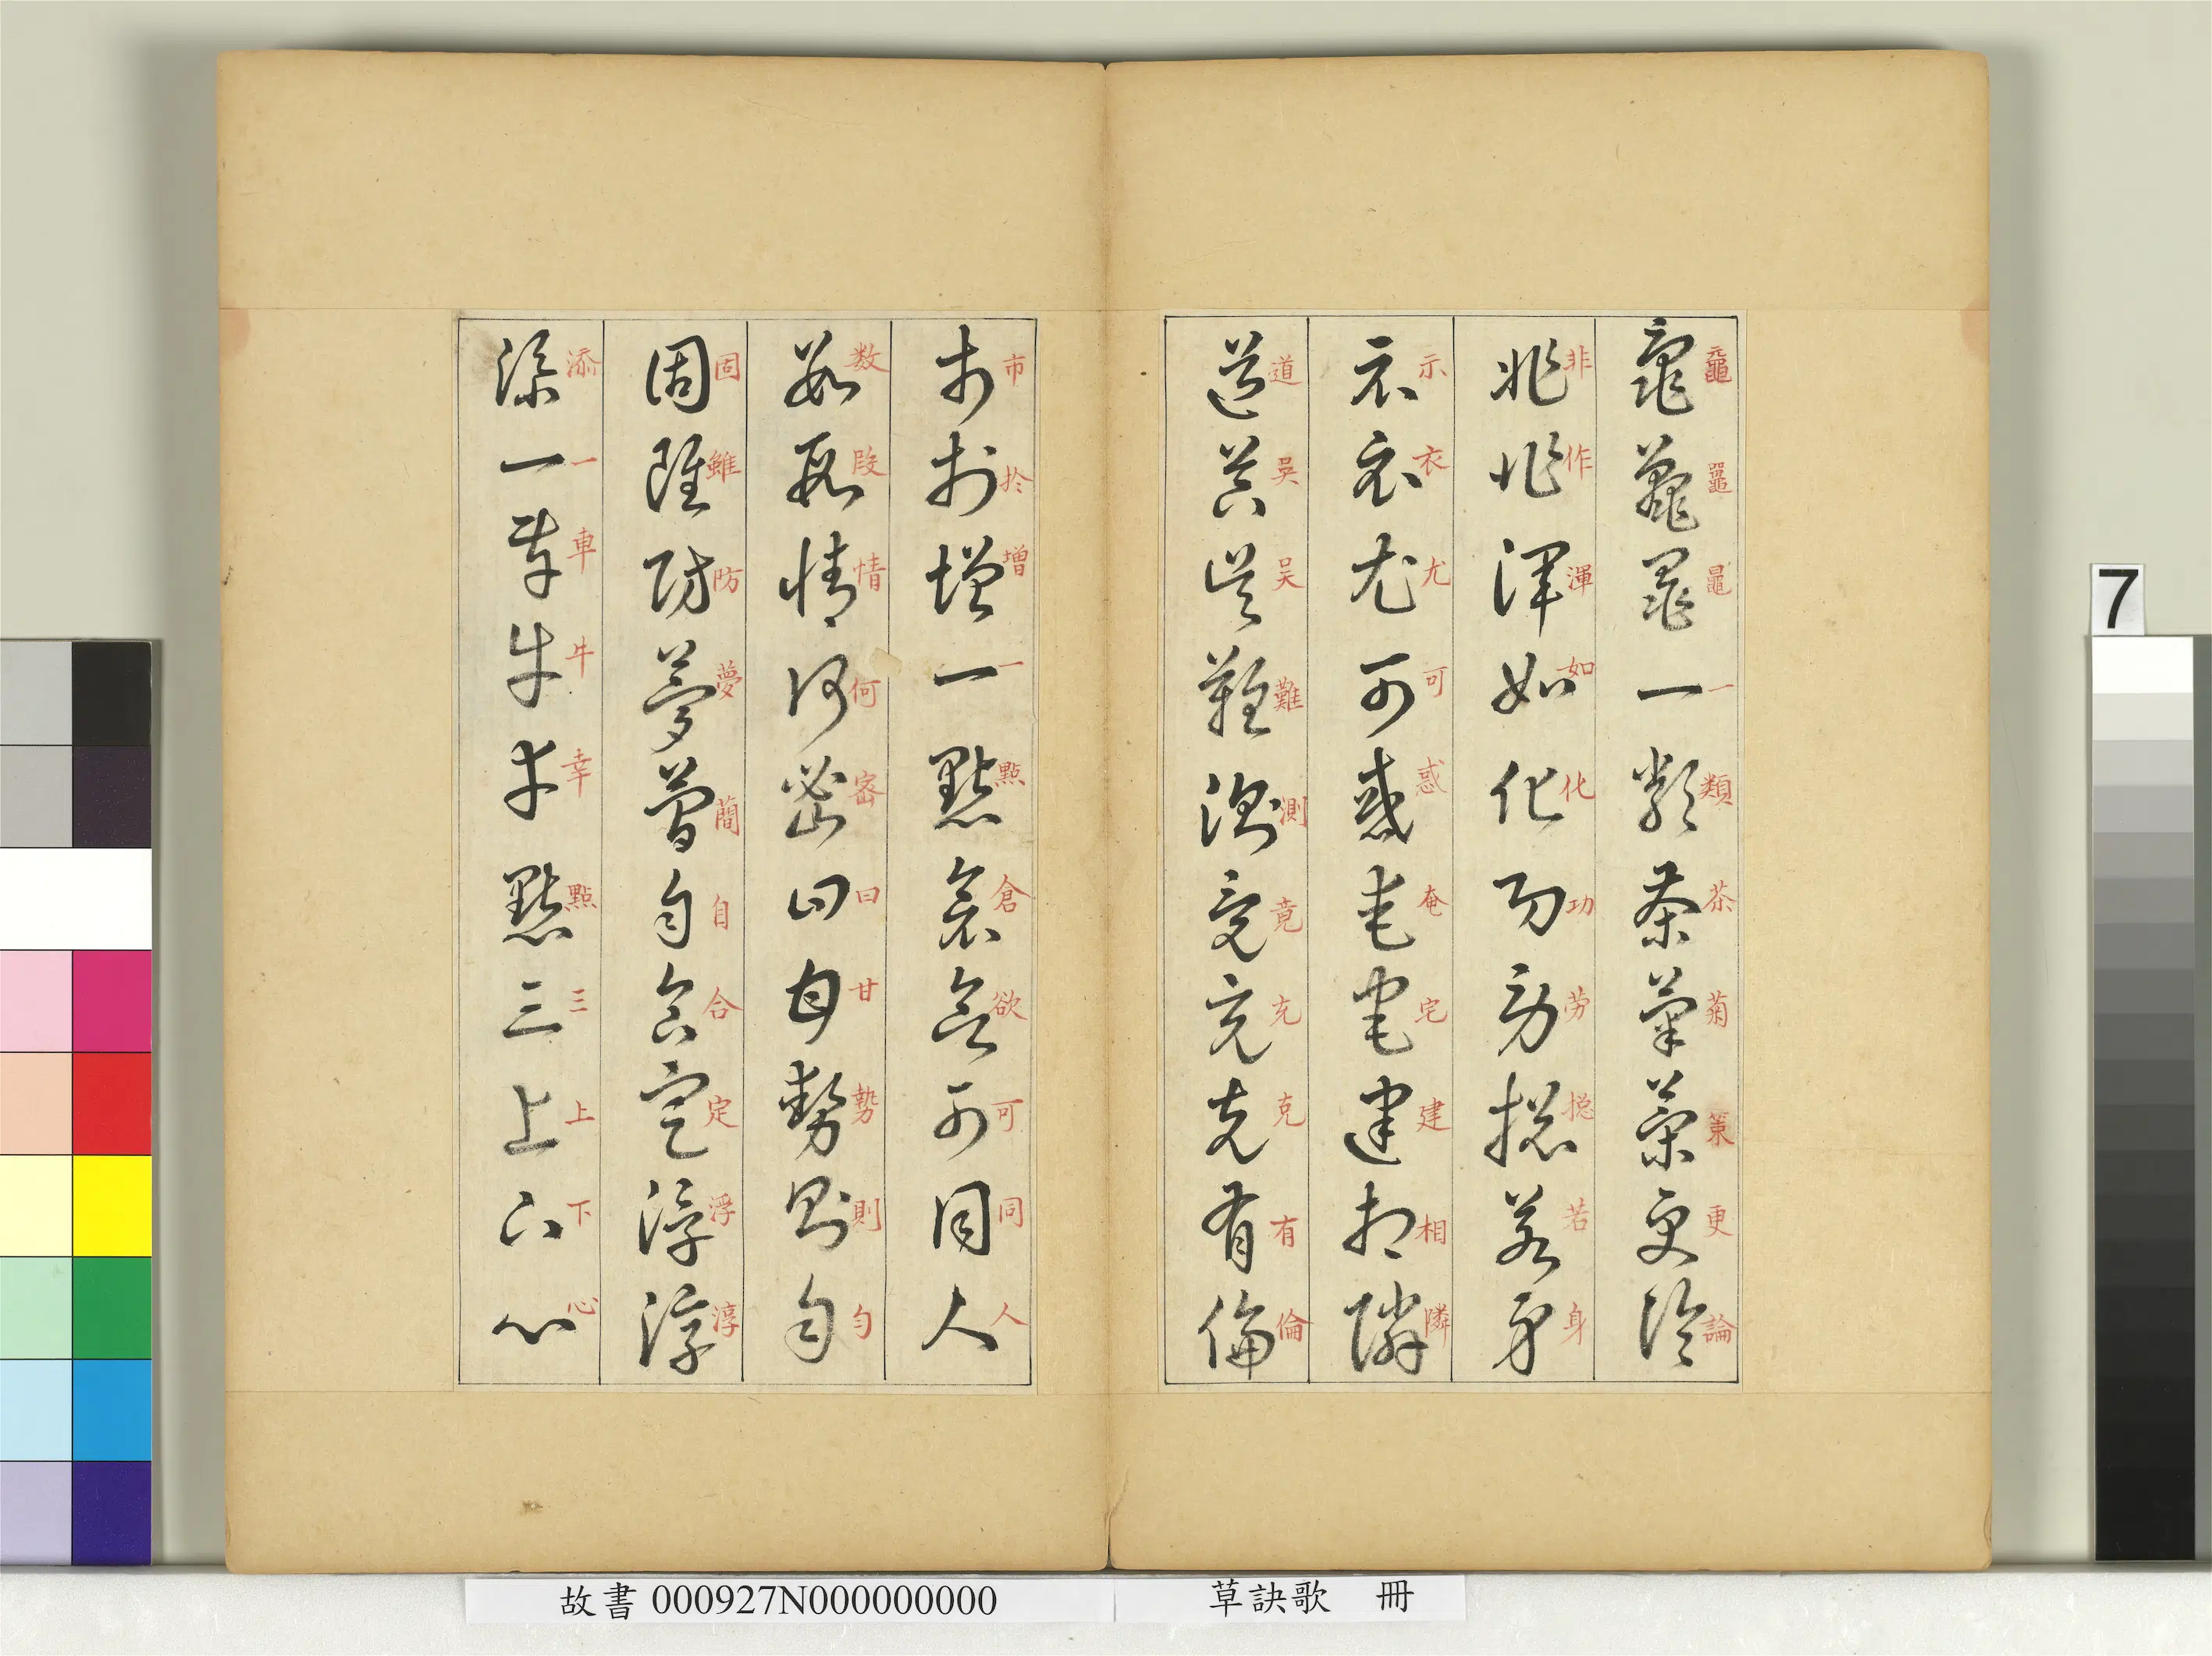 黿鼉鼂一類茶菊策更論
非作渾如化功劳揔若身
示衣尤可惑奄宅建相隣
道吳吴難測竟充克有倫
市於增一點倉欲可同人
数段情何密曰甘勢則勻
固雖防夢蕳自合定浮淳
添一車牛幸點三上下心
7
故書 000927N000000000
草訣歌 冊